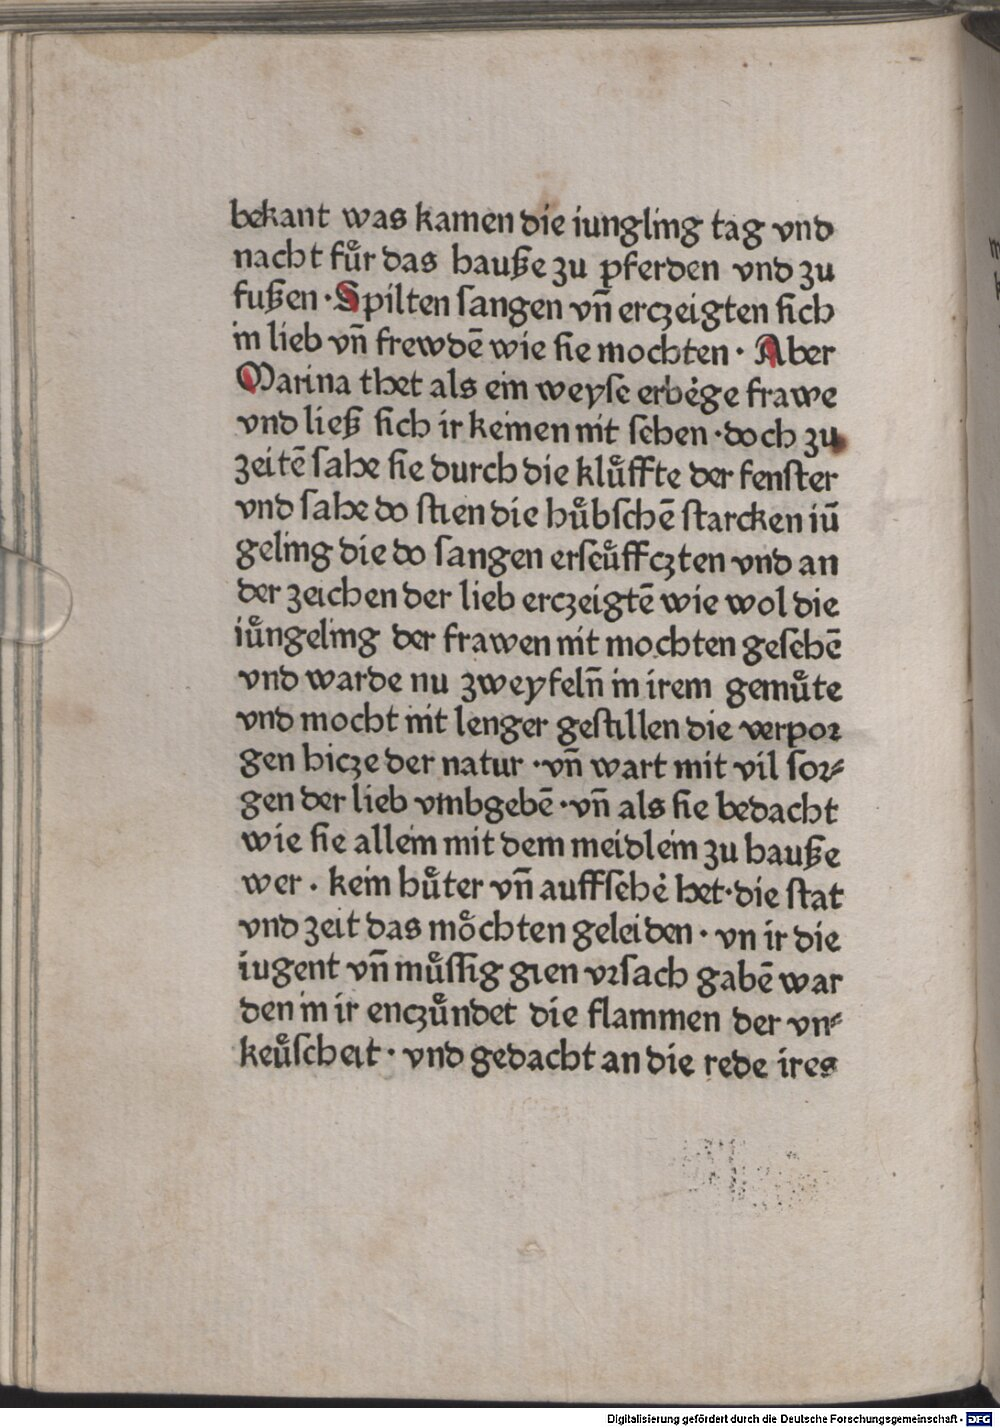 bekant was kamen die iungling tag vnd
nacht fuͤr das hauße zu pferden vnd zu
fußen · Spilten sangen vn̄ erczeigten sich
in lieb vn̄ frewdē wie sie mochten · Aber
Marina thet als ein weyse erbėge frawe
vnd ließ sich ir keinen nit sehen · doch zu
zeitē sahe sie durch die kluͤffte der fenster
vnd sahe do stien die huͤbschē starcken iū
geling die do sangen erseuͤffczten vnd an
der zeichen der lieb erczeigtē wie wol die
iuͤngeling der frawen nit mochten gesehē
vnd warde nu zweyfeln̄ in irem gemuͤte
vnd mocht nit lenger gestillen die verpor
gen hicze der natur · vn̄ wart mit vil sor⸗
gen der lieb vmbgebē · vn̄ als sie bedacht
wie sie allein mit dem meidlein zu hauße
wer . kein huͤter vn̄ auffsehė het · die stat
vnd zeit das moͤchten geleiden · vn ir die
iugent vn̄ muͤssig gien vrsach gabē war
den in ir enczuͤndet die flammen der vn⸗
keuͤscheit · vnd gedacht an die rede ires
Digitalisierung gefördert durch die Deutsche Forschungsgemeinschaft - DFG